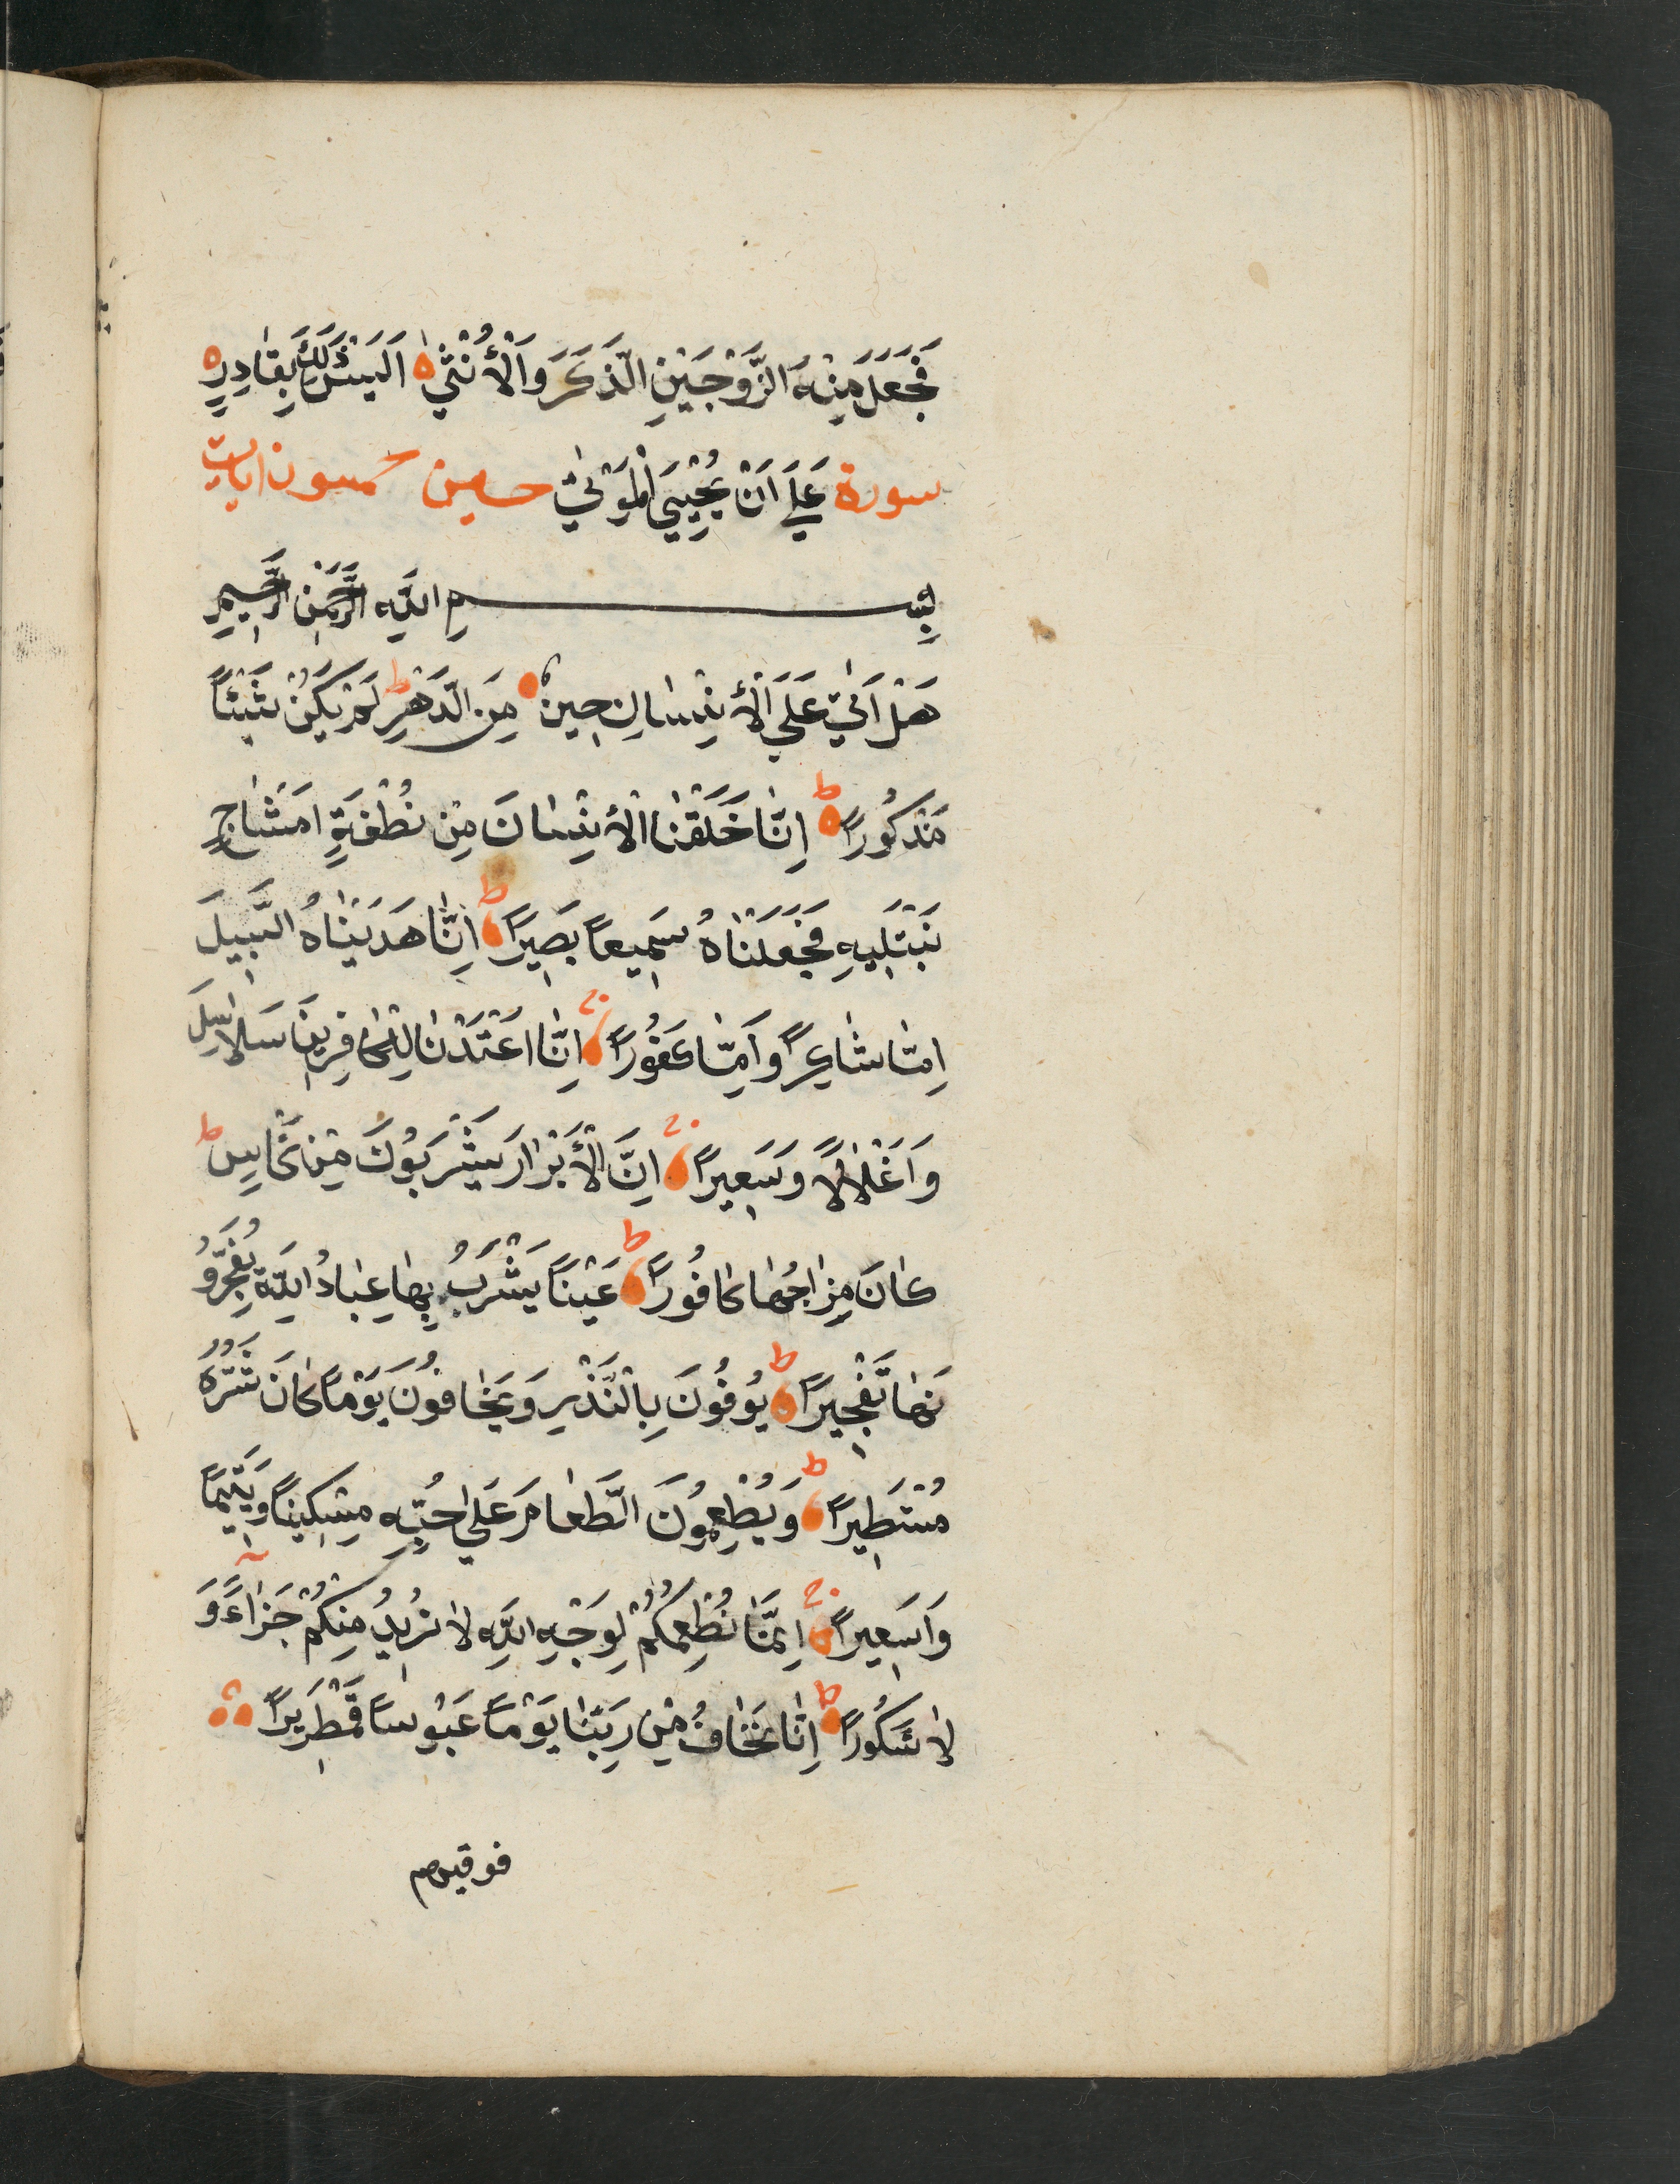 فَجَعَلَ مِنْهُ الزَّوْجَيْنِ الذَّكَرَ وَالْأُنْثٰي اَلَيْسَ ذٰلِكَ بِقَادِرٍ
سورة عَلَي اَنْ يُحْيِيَ الْمَوْتٰي حسين خمسون ايات
بِسْمِ اللّٰهِ الرَّحْمٰنِ الرَّحِيمِ
هَلْ اَتٰي عَلَي الْأِنْسَانِ حِينٌ مِنَ الدَّهْرِ ط لَمْ يَكُنْ شَيْئًا
مَذْكُورًا ط اِنَّا خَلَقْنَا الْأِنْسَانَ مِنْ نُطْفَةٍ اَمْشَاجٍ
نَبْتَلِيهِ فَجَعَلْنَاهُ سَمِيعًا بَصِيرًا ط اِنَّا هَدَيْنَاهُ السَّبِيلَ
اِمَّا شَاكِرًا وَاِمَّا كَفُورًا ج اِنَّا اَعْتَدْنَا لِلْكَافِرِينَ سَلَاسِلَ
وَاَغْلَالًا وَسَعِيرًا ج اِنَّ الْأَبْرَارَ يَشْرَبُونَ مِنْ كَاسٍ ط
كَانَ مِزَاجُهَا كَافُورًا ط عَيْنًا يَشْرَبُ بِهَا عِبَادُ اللّٰهِ يُفَجِّرُو
نَهَا تَفْجِيرًا ط يُوفُونَ بِالنَّذْرِ وَيَخَافُونَ يَوْمًا كَانَ شَرُّهُ
مُسْتَطِيرًا ط وَيُطْعِمُونَ الطَّعَامَ عَلٰي حُبِّهِ مِسْكِينًا وَيَتِيمًا
وَاَسِيرًا ج اِنَّمَا نُطْعِمُكُمْ لِوَجْهِ اللّٰهِ لَا نُرِيدُ مِنْكُمْ جَزَاءً وَ
لَا شَكُورًا ط اِنَّا نَخَافُ مِنْ رَبِّنَا يَوْمًا عَبُوسًا قَمْطَرِيرًا
فوقيهم